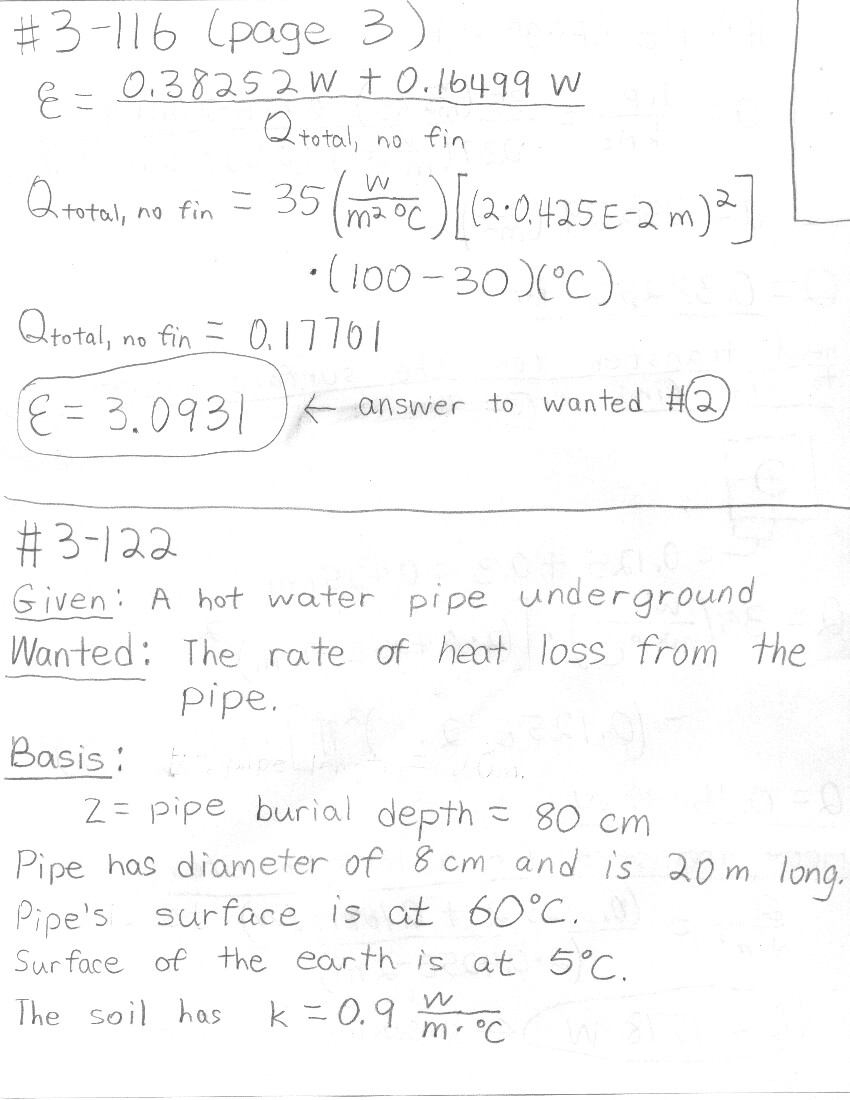 #3-116 (page 3)
ε = (0.38252 W + 0.16499 W) / Qtotal, no fin
Qtotal, no fin = 35 (W/m² °C) [(2·0.425E-2 m)²]
·(100-30)(°C)
Qtotal, no fin = 0.17701
ε = 3.0931 ← answer to wanted #②
#3-122
Given: A hot water pipe underground
Wanted: The rate of heat loss from the
pipe.
Basis:
z = pipe burial depth = 80 cm
Pipe has diameter of 8 cm and is 20 m long.
Pipe's surface is at 60°C.
Surface of the earth is at 5°C.
The soil has k = 0.9 W/m·°C